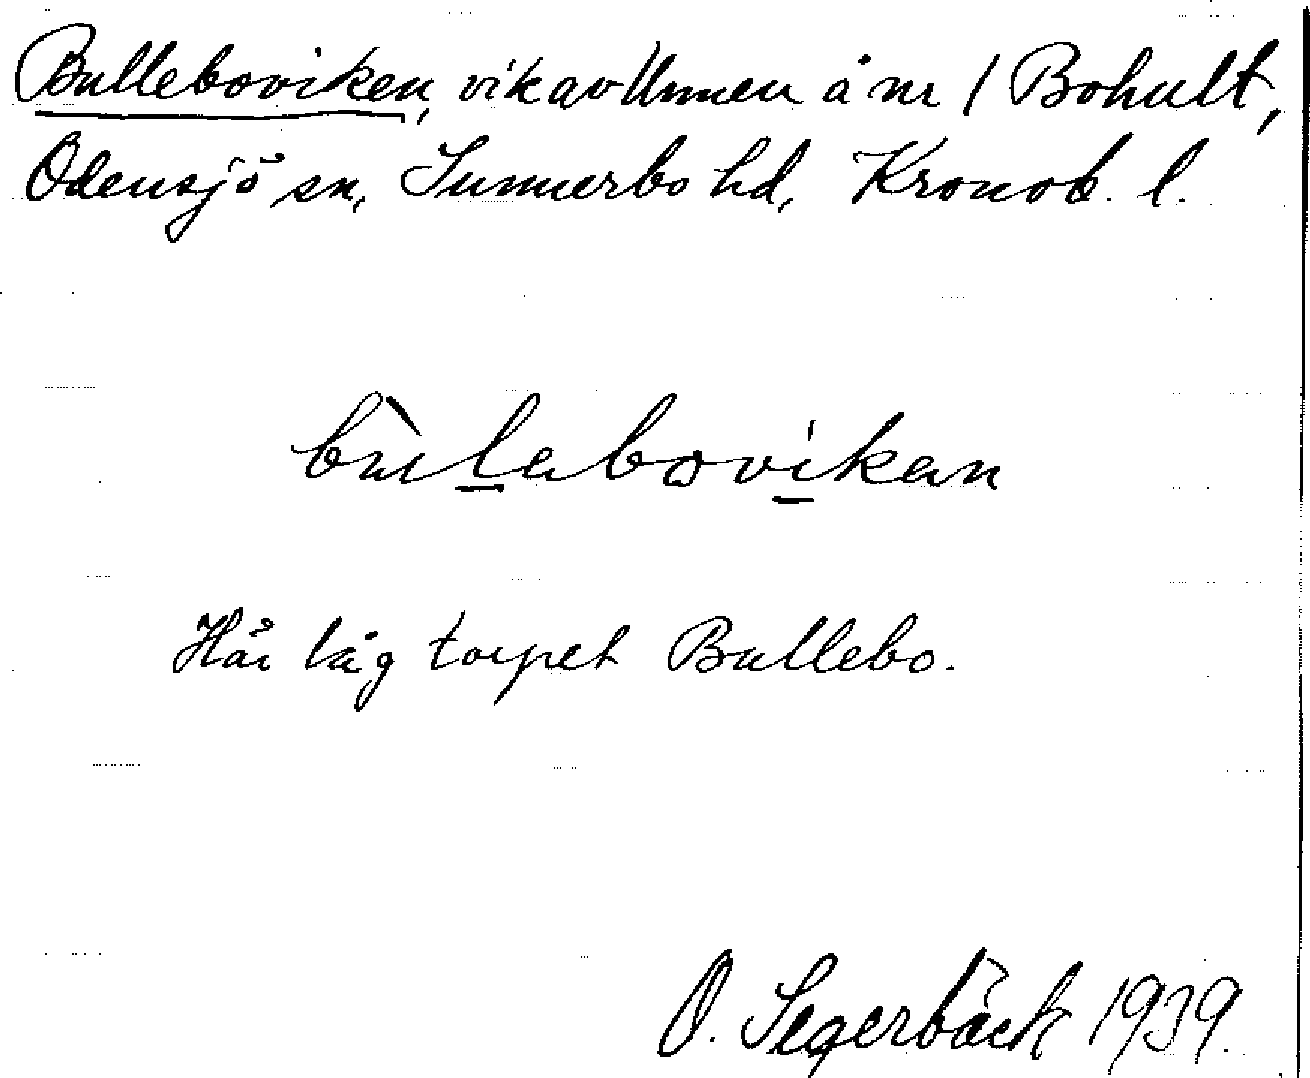 Bulleboviken, vik av Unnen å nr 1 Bohult,
Odensjö sn, Sunnerbo hd, Kronob. l.
bùlabovikan
Här låg torpet Bullebo.
O. Segerbäck 1939.